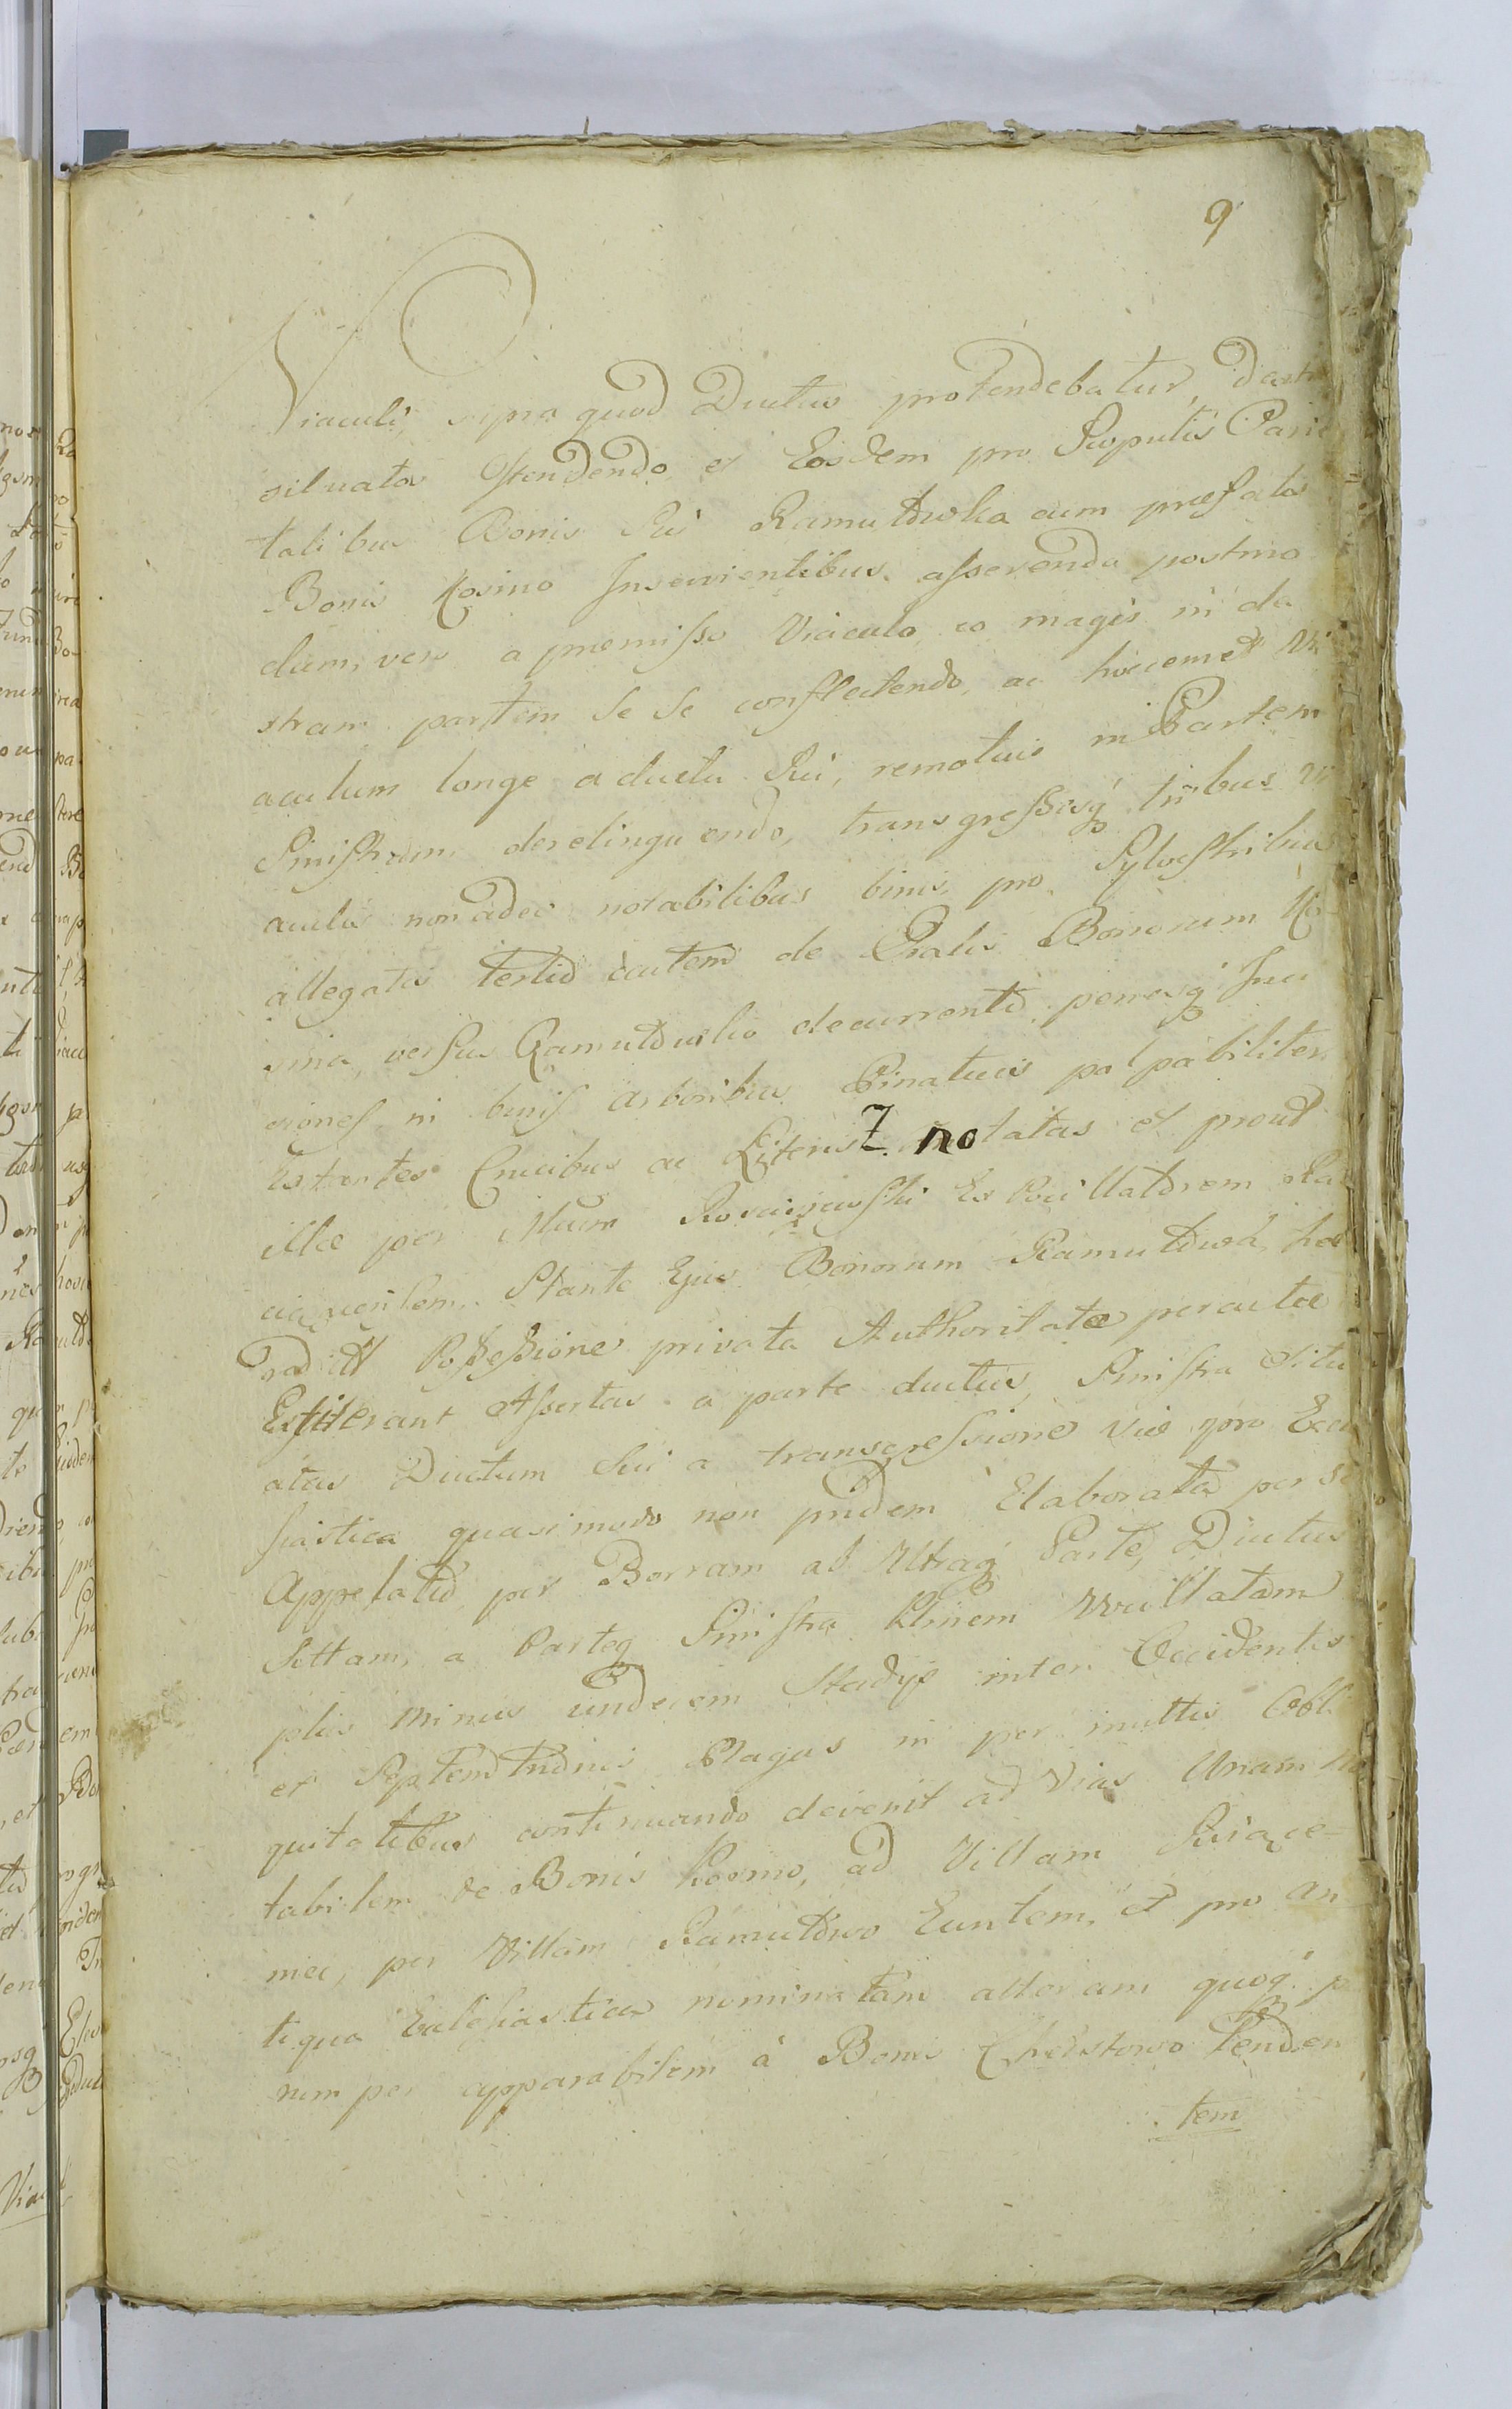 9
Viaculi, supra quod Ductus protendebatur, dextra
situatos ostendendo, et Eosdem pro Scopulis Parie
talibus Bonis Sui Ramutowka cum prefatis
Bonis Kosino Inservientibus asserendo postmo
dum, vero a premisso Viaculo, eo magis in dex
tram partem se se conflectendo, ac hocemet Vi
aculum longe a ductu Sui, remotius in Partem
Sinistram derelinquendo, transgressisq tribus Vi
aculis non adeo notabilibus binis, pro Sylvestribus
allegatis tertio autem de Pratis Bonorum Ko-
sino, versus Ramutowko decurrente, penesq Inci
siones in binis arboribus Pinatucis palpabiliter
Extantes Crucibus ac Literis Z. notatas et prout
illae per Mum Ex Pocillatorem
Stante Ejus Bonorum Ramutowo,
Possessione privata Authoritate peractae
Extiterant Assertas a parte ductus, Sinistra Situ
atas Ductum Sui a transgressione Viae pro Ecle
siastica quasimodo non pridem Elaborata per se
Appelatio, per Borram ab Utraq Parte, Ductus
Sittam, a Parteq Sinistra
plus minus undecim Stadys inter Occidentis
et Septemtrionis Plagas in per multis Obli
quitatibus continuando devenit ad Vias Unam no
tabilem de Bonis Kosino, ad Villam
niec, per Villam Ramutowo Euntem, et pro an
tiqua Eclesiastica nominatam alteram quoq p
nimper apparabilem à Bonis Chrostowo tenden
tem